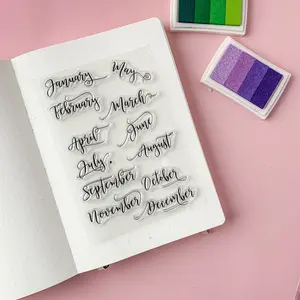 January May
February March
April June
July August
September October
November December